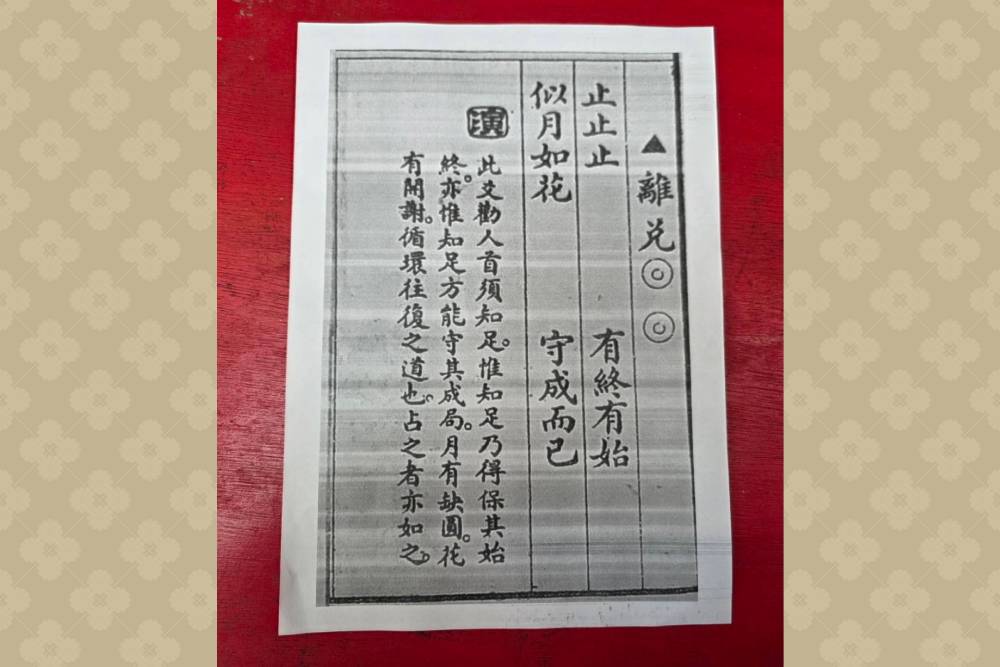 ▲離兑◎◎
止止止 有終有始
似月如花 守成而已
演
此爻勸人首須知足。惟知足乃得保其始
終。亦惟知足方能守其成局。月有缺圓。花
有開謝。循環往復之道也。占之者亦如之。